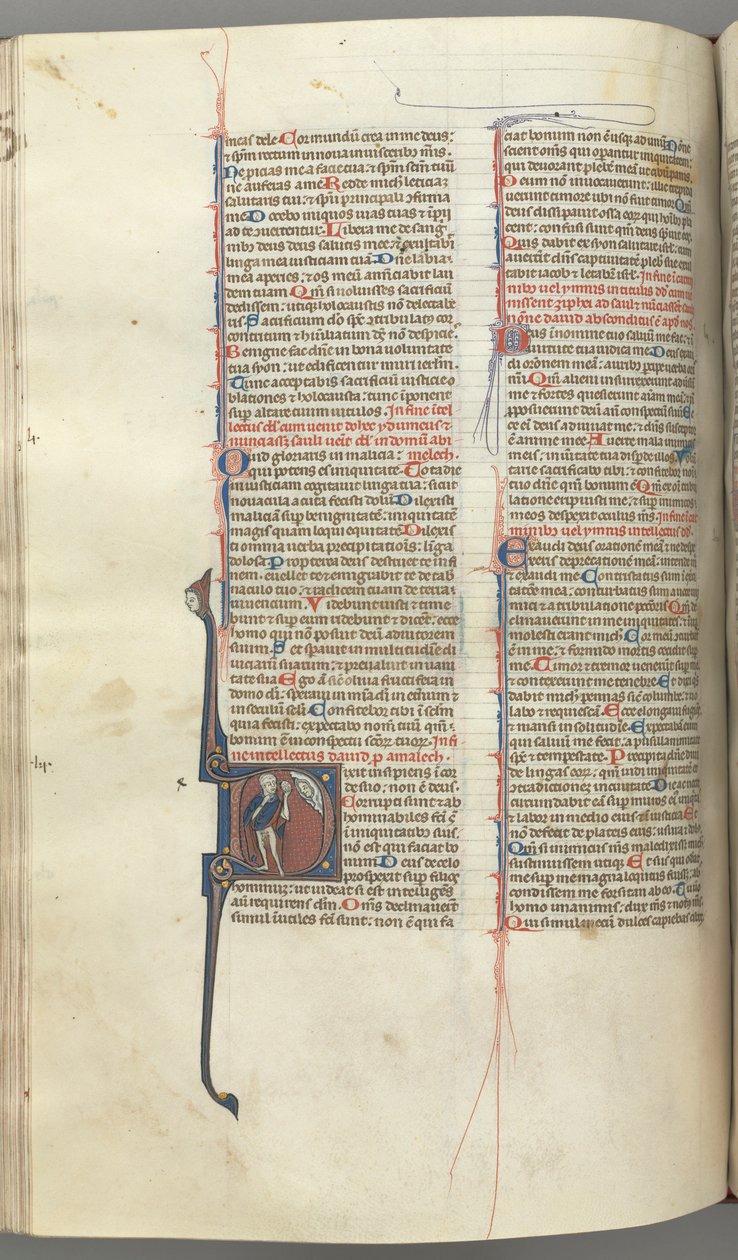 meas dele Cor mundū crea in me deus:
⁊ sp̄m rectum innova in visceribꝰ m̄is.
Ne p̱icias me a facie tua: ⁊ sp̄m sc̄m tuū
ne auferas a me Redde michi leticiā
salutaris tui: ⁊ sp̄u principali ꝯfirma
me Docebo iniquos vias tuas: ⁊ īpii
ad te ꝯvertentur. Libera me de sang
nibꝰ deus deus salutis mee: ⁊ exultabit
lingua mea iusticiam tuā Dn̄e labia
mea aperies: ⁊ os meū annūciabit lau
dem tuam Qm̄ si voluisses sacrificiū
dedissem: utiqꝫ holocaustis nō delectabe
ris Sacrificium dō sp̄c ꝯtribulatꝰ cor
contritum ⁊ hūiliatum dꝰ nō despicies
Benigne fac dn̄e in bona voluntate
tua syon: ut edificentur muri ierl̄m.
Tunc acceptabis sacrificiū iusticie o
blationes ⁊ holocausta: tunc īponent
sup̱ altare tuum vitulos. In fine ītel
lectus dd̄ cum venit dohec ydumeus ⁊
nunciass̄ sauli veīt dd̄ in domū abi
Quid gloriaris in malicia: melech.
qui potens es iniquitate Tota die
iniusticiam cogitavit lingua tua: sicut
novacula acuta fecisti dolū Dilexisti
maliciā sup̱ benignitatē: iniquitatē
magis quam loqui equitatē Dilexis
ti omnia verba precipitatiois: līga
dolosa Propterea deus destruet te in fi
nem: evellet te ⁊ emigrabit te de tab
naculo tuo: ⁊ radicem tuam de terra
viventium. Videbunt iusti ⁊ time
bunt ⁊ sup̱ eum ridebunt ⁊ dicēt: ecce
homo qui nō posuit deū adiutorem
suum. Set speravit in multitudīe di
viciarū suarum: ⁊ prevaluit in vani
tate sua Ego āt sic̄ oliva fructifera in
domo di: speravi in mīa di in et̄num ⁊
in seculū sc̄li Confitebor tibi ī sc̄lm
quia fecisti: expectabo nom̄ tuū qm̄
bonum ē in conspectu sc̄orꝝ tuorꝝ. In fi
ne intellectus david p̱ amalech.
Dixit insipiens ī cor
de suo: non ē deus.
Corrupti sunt ⁊ ab
hominabiles fc̄i s̄t
ī iniquitatibꝰ suis:
nō est qui faciat bo
num Deus de celo
prospexit sup̱ filios
hominuꝫ: ut videat si est intelligēs
aū requirens dm̄. Om̄s declinaverūt
simul īutiles fc̄i sunt: non ē qui fa
ciat bonum non ē usqꝫ ad unū Nōne
scient om̄s qui op̱antur iniquitatem:
qui devorant plebē meā ut cibū panis.
Deum nō invocaverunt: illic trepida
verunt timore ubi nō fuit timor Qm̄
deus dissipavit ossa eorꝝ qui hoībꝰ pla
cent: confusi sunt qm̄ deus sprevit eos.
Quis dabit ex syon salutare isrl̄: cum
averterit dn̄s captivitatē plebis sue exul
tabit iacob ⁊ letabit̄ isrl̄. In fine ī carmi
nibꝰ vel ymnis intellectus dd̄ cum ve
nissent ziphei ad saul ⁊ nūciassēt saul
nōne david absconditus ē apd nos.
Deus ī nomine tuo salvū me fac: ⁊ ī
virtute tua iudica me Deus exau
di or̄onem meā: auribꝰ p̱cipe verba oris
mei. Qm̄ alieni insurrexerunt advsū
me ⁊ fortes quesierūt aiam meā: ⁊ nō
p̱posuerunt deū añ conspectū suū Ec
ce ei deus adiuvat me: ⁊ dn̄s susceptor
ē anime mee Averte mala inimicis
meis: in vitate tua disp̱de illos. Volun
tarie sacrificabo tibi: ⁊ confitebor noī
tuo dn̄e qm̄ bonum ē Qm̄ ex oī tribu
latione eripuisti me: ⁊ sup̱ inimicos
meos despexit oculus m̄s. In fine ī car
minibꝰ vel ymnis intellectus dd̄.
Exaudi deus orationē meā ⁊ ne despe
xeris deprecationē meā: intende m̄
⁊ exaudi me Contristatus sum ī exci
tatōe mea: conturbatus sum a voce ini
mici ⁊ a tribulatione pctōris Qm̄ de
clinaverunt in me iniquitates: ⁊ ī ira
molesti erant michi Cor meū ꝯturbat
ē in me: ⁊ formido mortis cecidit sup̱
me. Timor ⁊ tremor venerūt sup̱ me
⁊ contexerunt me tenebre Et dixi qis
dabit michi pennas sic̄ columbe: ⁊ vo
labo ⁊ requiescā. Ecce elongavi fugiēs:
⁊ mansi in solitudīe. Expectabā eum
qui salvū me fecit: a pusillanimitate
sp̄c ⁊ tempestate. Precipita dn̄e divi
de linguas eorꝝ: qm̄ vidi iniquitatē ⁊
ꝯtradictionē in civitate Die ac nocte
circundabit eā sup̱ muros eiꝰ iniqitas
⁊ labor in medio eius ⁊ iniusticia Et
nō defecit de plateis eius: usura ⁊ dolꝰ.
Qm̄ si inimicus m̄s maledixiss̄ michi
sustinuissem utiqꝫ Et si is qui oderat
me sup̱ me magna locutus fuiss̄: abs
condissem me forsitan ab eo. Tu vo
homo unanimis: dux m̄s ⁊ notꝰ m̄s
Qui simul mecū dulces capiebas cibos